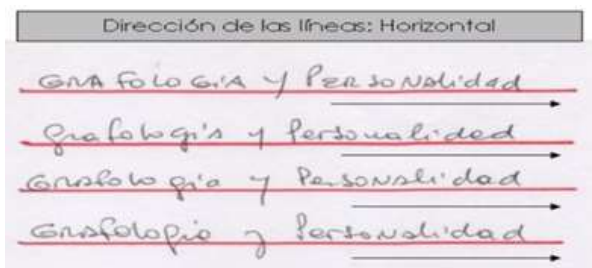 Dirección de las líneas: Horizontal
GRAFOLOGIA y PERSONAlidad
grafologia y Personalidad
Grafologia y Personalidad
Grafologia y Personalidad